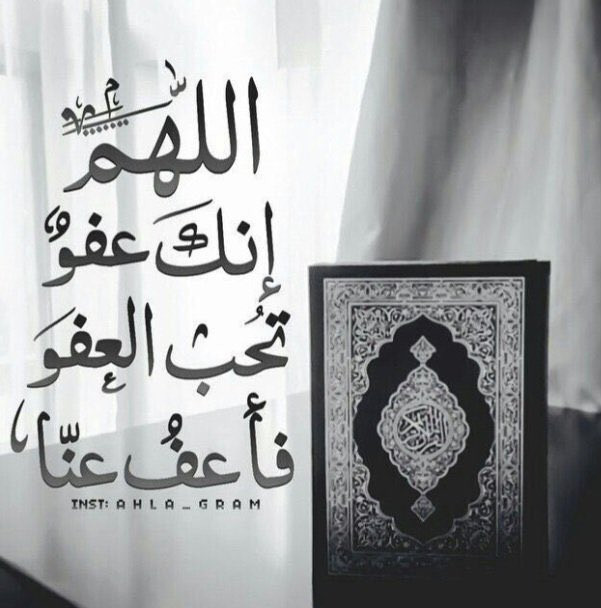 اللّهم
إنكَ عفوٌ
تُحب العفوَ
فأعفُ عنّا
INST: AHLA_GRAM
القرآن الكريم